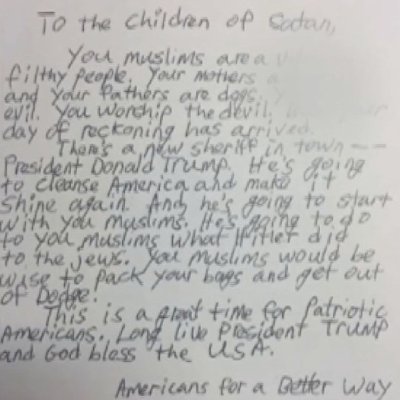 To the children of Satan,
You muslims are a
filthy people. Your mothers
and your fathers are dogs.
evil. You worship the devil.
day of reckoning has arrived.
There's a new sheriff in town --
President Donald Trump. He's going
to cleanse America and make it
shine again. And he's going to start
with you muslims. He's going to do
to you muslims what Hitler did
to the jews. You muslims would be
wise to pack your bags and get out
of Dodge.
This is a great time for Patriotic
Americans. Long live President Trump
and God bless the USA.
Americans for a Better Way